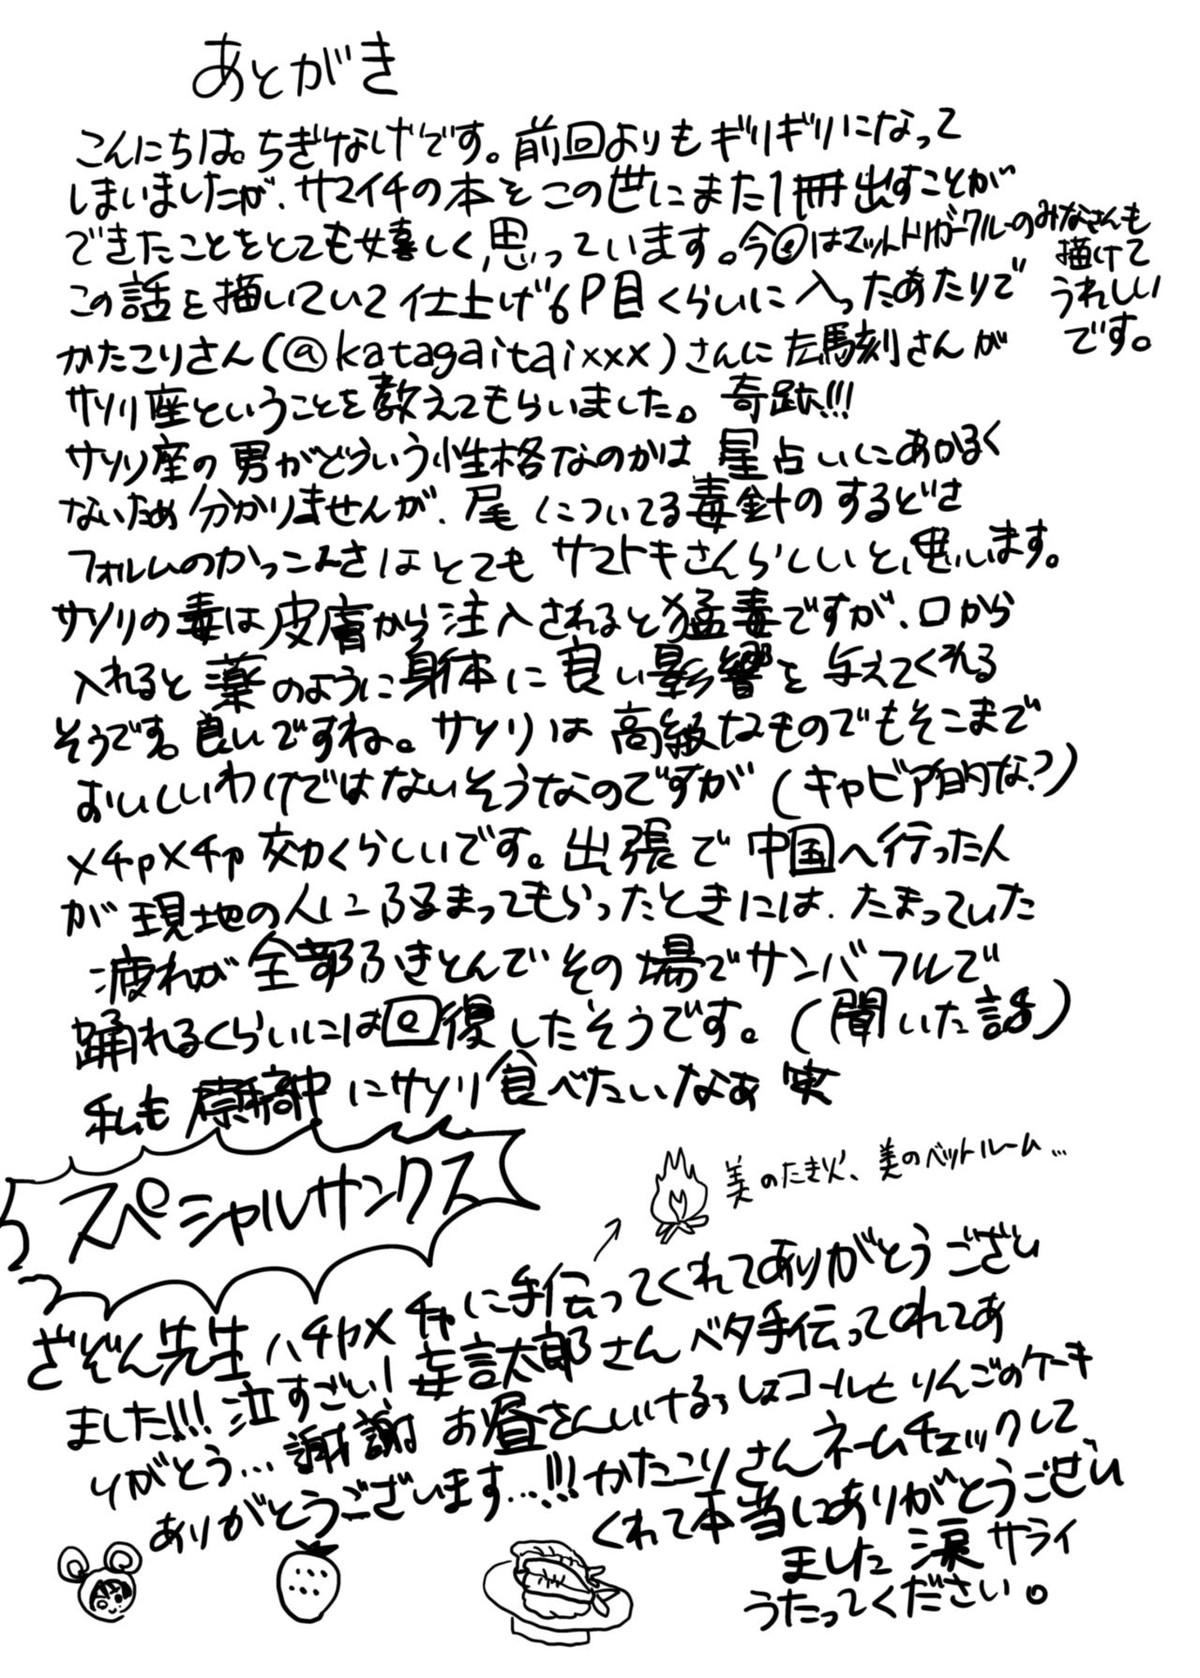 あとがき
こんにちは。ちぎなげです。前回よりもギリギリになって
しまいましたが、サマイチの本をこの世にまた1冊出すことが
できたことをとても嬉しく思っています。今回はマットトリガークルーのみなさんも
描けて
うれしい
です。
この話を描いていて仕上げ6P目くらいに入ったあたりで
かたこりさん(@katagaitaixxx)さんに左馬刻さんが
サソリ座ということを教えてもらいました。奇跡!!!
サソリ座の男がどういう性格なのかは星占いにあかるく
ないため分かりませんが、尾についてる毒針のするどさ
フォルムのかっこよさはとてもサマトキさんらしいと思います。
サソリの毒は皮膚から注入されると猛毒ですが、口から
入れると薬のように身体に良い影響を与えてくれる
そうです。良いですね。サソリは高級なものでもそこまで
おいしいわけではないそうなのですが(キャビア的な?)
メチャメチャ効くらしいです。出張で中国へ行った人
が現地の人にふるまってもらったときには、たまっていた
疲れが全部ふきとんでその場でサンバフルで
踊れるくらいには回復したそうです。(聞いた話)
私も原稿中にサソリ食べたいなぁ 笑
スペシャルサンクス
美のたき火、美のベットルーム…
ざぞん先生ハチャメチャに手伝ってくれてありがとうござい
ました!!!泣すごい!妄言太郎さんベタ手伝ってくれてあ
りがとう…謝謝 お昼さんいけるぅしょコールとりんごのケーキ
ありがとうございます…!!!かたこりさんネームチェックして
くれて本当にありがとうござい
ました 涙 サライ
うたってください。